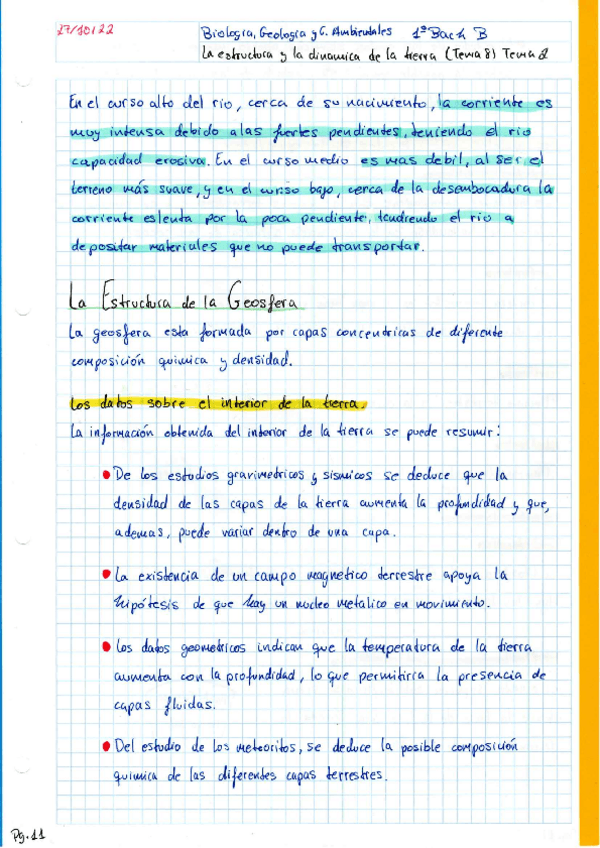 27/10/22
Biología, Geología y C. Ambientales 1º Bach B
La estructura y la dinamica de la tierra (Tema 8) Tema 2
En el curso alto del rio, cerca de su nacimiento, la corriente es
muy intensa debido a las fuertes pendientes, teniendo el rio
capacidad erosiva. En el curso medio es mas debil, al ser el
terreno más suave, y en el curso bajo, cerca de la desembocadura la
corriente es lenta por la poca pendiente, tendrendo el rio a
depositar materiales que no puede transportar.
La Estructura de la Geosfera
La geosfera esta formada por capas concentricas de diferente
composición quimica y densidad.
Los datos sobre el interior de la tierra.
La información obtenida del interior de la tierra se puede resumir:
• De los estudios gravimetricos y sismicos se deduce que la
densidad de las capas de la tierra aumenta la profundidad y que,
ademas, puede variar dentro de una capa.
• La existencia de un campo magnetico terrestre apoya la
hipótesis de que hay un nucleo metalico en movimiento.
• Los datos geometricos indican que la temperatura de la tierra
aumenta con la profundidad, lo que permitiria la presencia de
capas fluidas.
• Del estudio de los meteoritos, se deduce la posible composición
quimica de las diferentes capas terrestres.
Pg.11